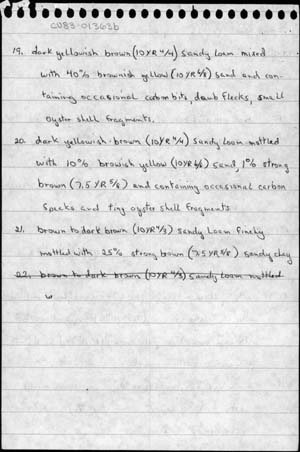 CV83-01363b
19. dark yellowish brown (10YR 4/4) sandy loam mixed
with 40% brownish yellow (10YR 6/8) sand and con-
taining occasional carbon bits, daub flecks, small
oyster shell fragments.
20. dark yellowish-brown (10YR 4/4) sandy loam mottled
with 10% browish yellow (10YR 6/8) sand, 1% strong
brown (7.5YR 5/8) and containing occasional carbon
specks and tiny oyster shell fragments
21. brown to dark brown (10YR 4/3) sandy loam finely
mottled with 25% strong brown (7.5YR 5/8) sandy clay
22. brown to dark brown (10YR 4/3) sandy loam mottled
w